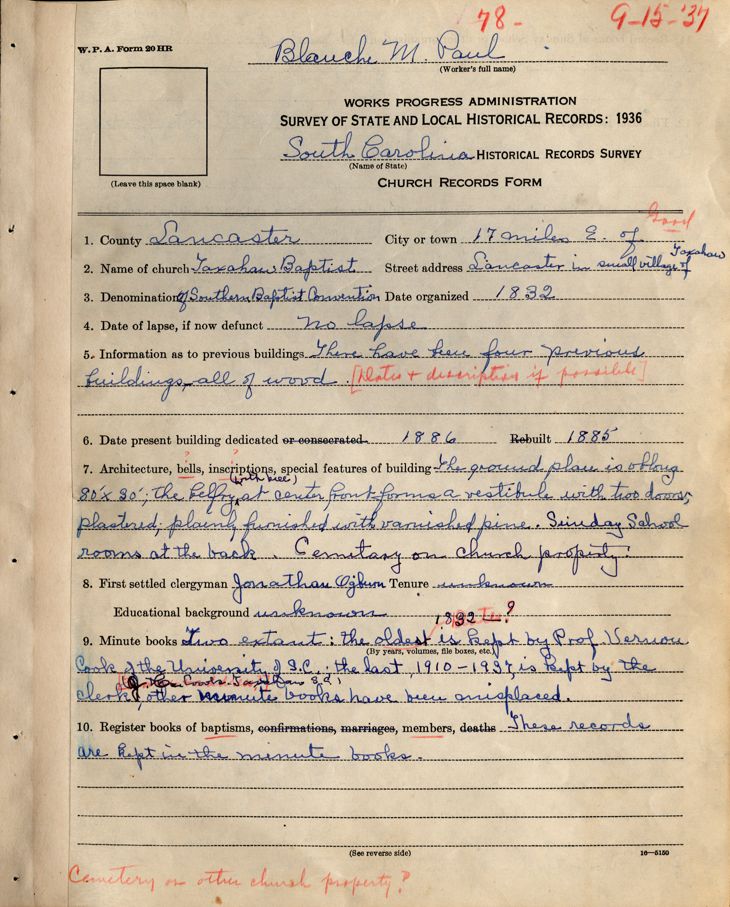 78- 9-15-'37
W. P. A. Form 20 HR
Blanche M. Paul
(Worker's full name)
WORKS PROGRESS ADMINISTRATION
SURVEY OF STATE AND LOCAL HISTORICAL RECORDS: 1936
South Carolina HISTORICAL RECORDS SURVEY
(Name of State)
(Leave this space blank)
CHURCH RECORDS FORM
Good
1. County Lancaster City or town 17 miles E. of
2. Name of church Taxahaw Baptist Street address Lancaster in small village of Taxahaw
3. Denomination of Southern Baptist Convention Date organized 1832
4. Date of lapse, if now defunct no lapse
5. Information as to previous buildings There have been four previous
buildings, all of wood. [Dates + description if possible]
6. Date present building dedicated or consecrated 1886 Rebuilt 1885
7. Architecture, bells, inscriptions, special features of building The ground plan is oblong
80' x 30'; the belfry (with bell) at center front forms a vestibule with two doors;
plastered; plainly furnished with varnished pine. Sunday School
rooms at the back. Cemetary on church property.
8. First settled clergyman Jonathan Ogburn Tenure unknown
Educational background unknown
1832-?
9. Minute books Two extant: the oldest is kept by Prof. Vernon
(By years, volumes, file boxes, etc.)
Cook of the University of S.C.; the last, 1910-1937, is kept by the
clerk other minute books have been misplaced.
10. Register books of baptisms, confirmations, marriages, members, deaths These records
are kept in the minute books.
(See reverse side)
16—5150
Cemetery on other church property?